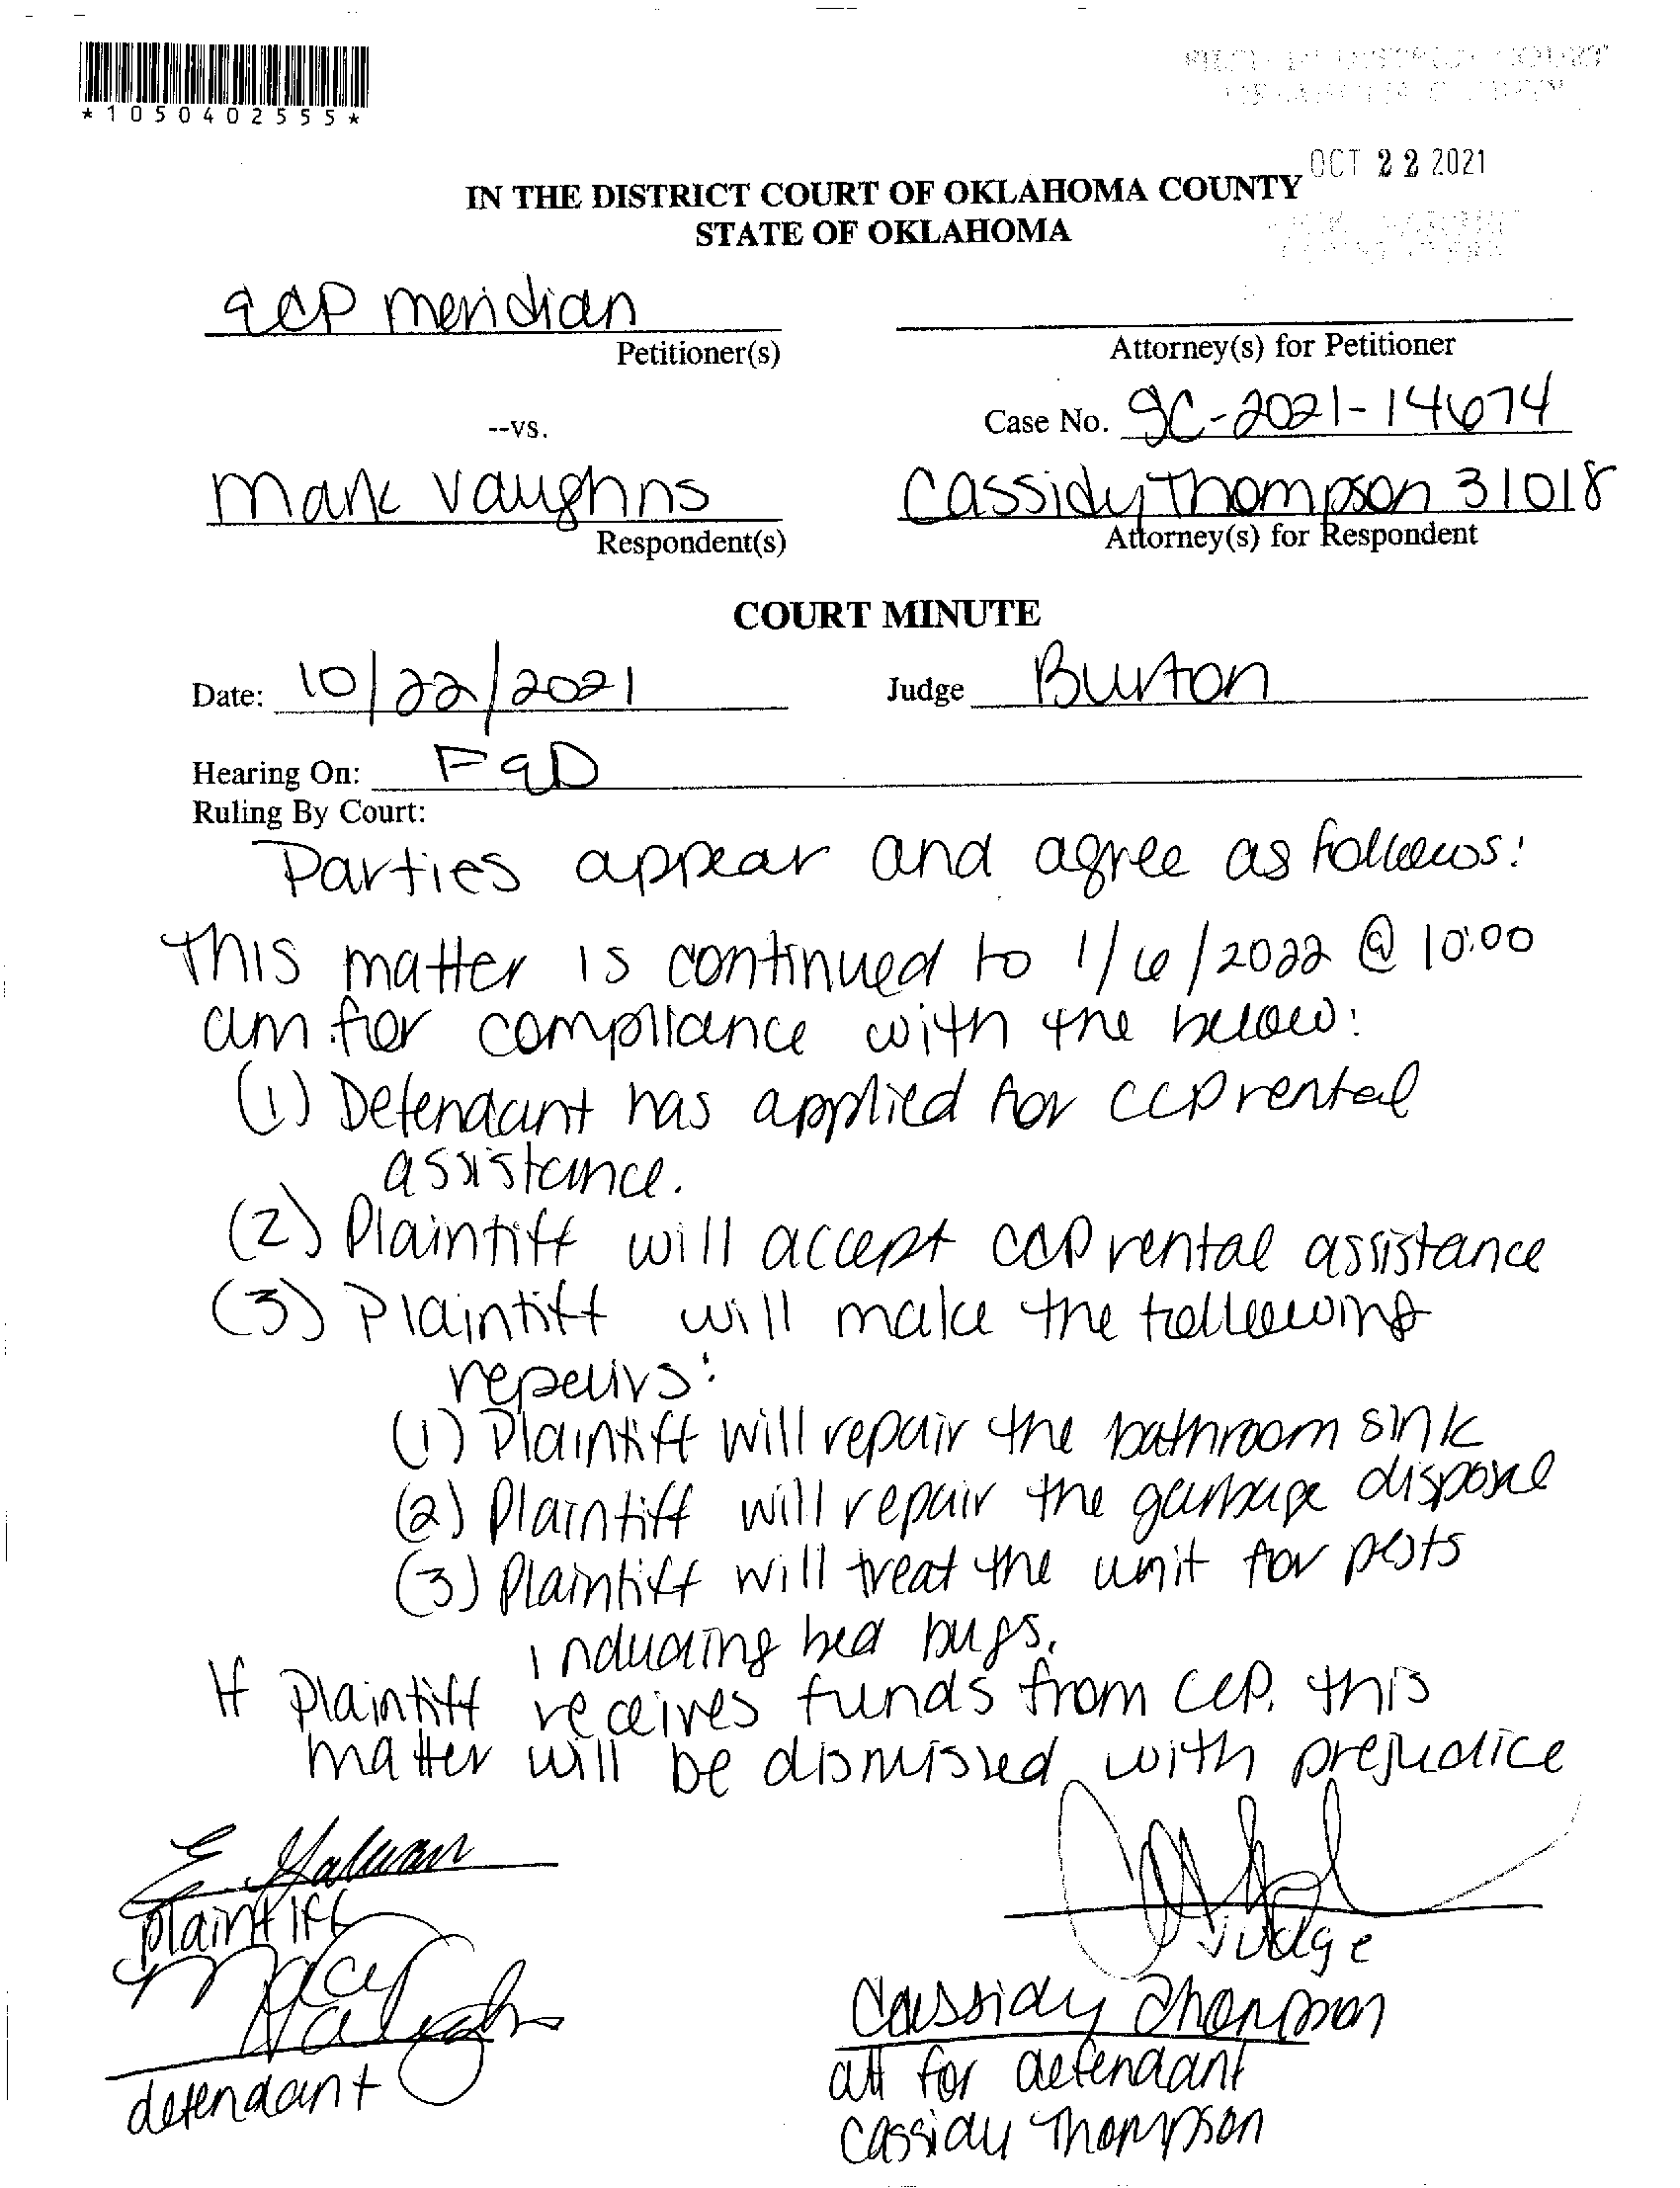 *1050402555*
FILED IN DISTRICT COURT
OKLAHOMA COUNTY
OCT 22 2021
IN THE DISTRICT COURT OF OKLAHOMA COUNTY
STATE OF OKLAHOMA
COURT CLERK
meridian
Petitioner(s)
Attorney(s) for Petitioner
--vs.
Case No. SC-2021-14674
Mark Vaughns
Respondent(s)
Cassidy Thompson 31018
Attorney(s) for Respondent
COURT MINUTE
Date: 10/22/2021
Judge Burton
Hearing On: F&D
Ruling By Court:
Parties appear and agree as follows:
This matter is continued to 1/6/2022 @ 10:00
am for compliance with the below:
(1) Defendant has applied for CCP rental
assistance.
(2) Plaintiff will accept CCP rental assistance
(3) Plaintiff will make the following
repairs:
(1) Plaintiff will repair the bathroom sink
(2) Plaintiff will repair the garbage disposal
(3) Plaintiff will treat the unit for pests
including bed bugs.
If Plaintiff receives funds from CCP, this
matter will be dismissed with prejudice
E.
plaintiff
Judge
Vaughns
defendant
Cassidy Thompson
att for defendant
Cassidy Thompson